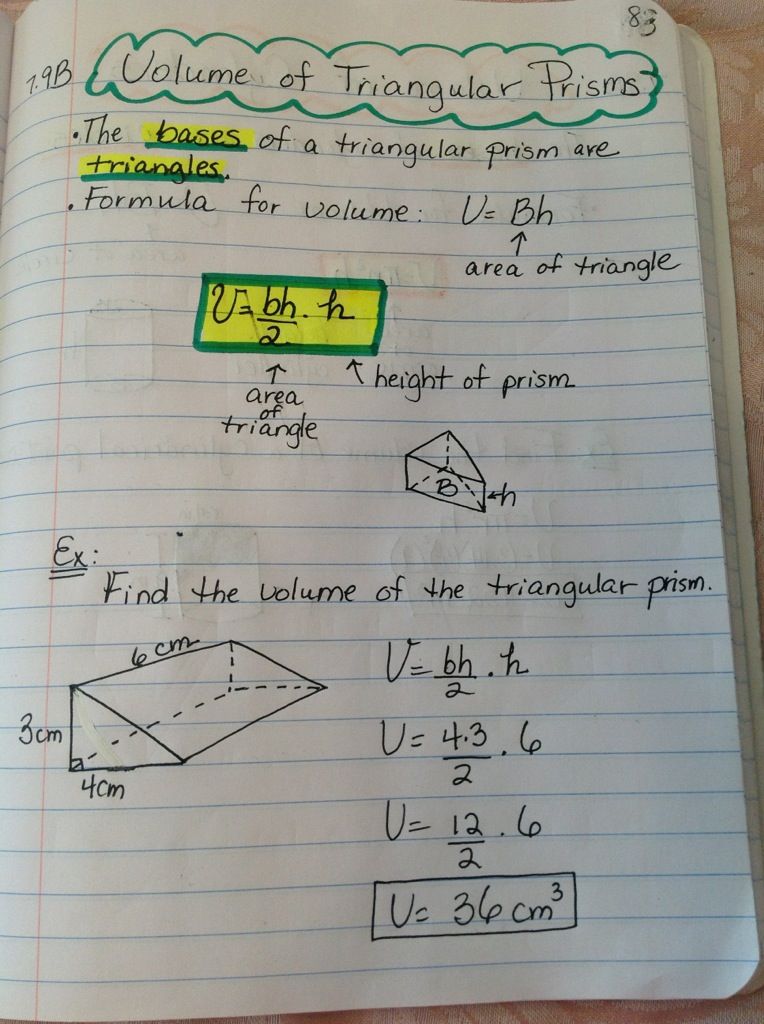 83
7.9B Volume of Triangular Prisms
• The bases of a triangular prism are
triangles.
• Formula for volume: V= Bh
↑
area of triangle
V= bh/2 · h
↑ ↑ height of prism
area
of
triangle
B ←h
Ex:
Find the volume of the triangular prism.
6 cm
V= bh/2 · h
3cm
V= 4·3/2 · 6
4cm
V= 12/2 · 6
V= 36 cm³